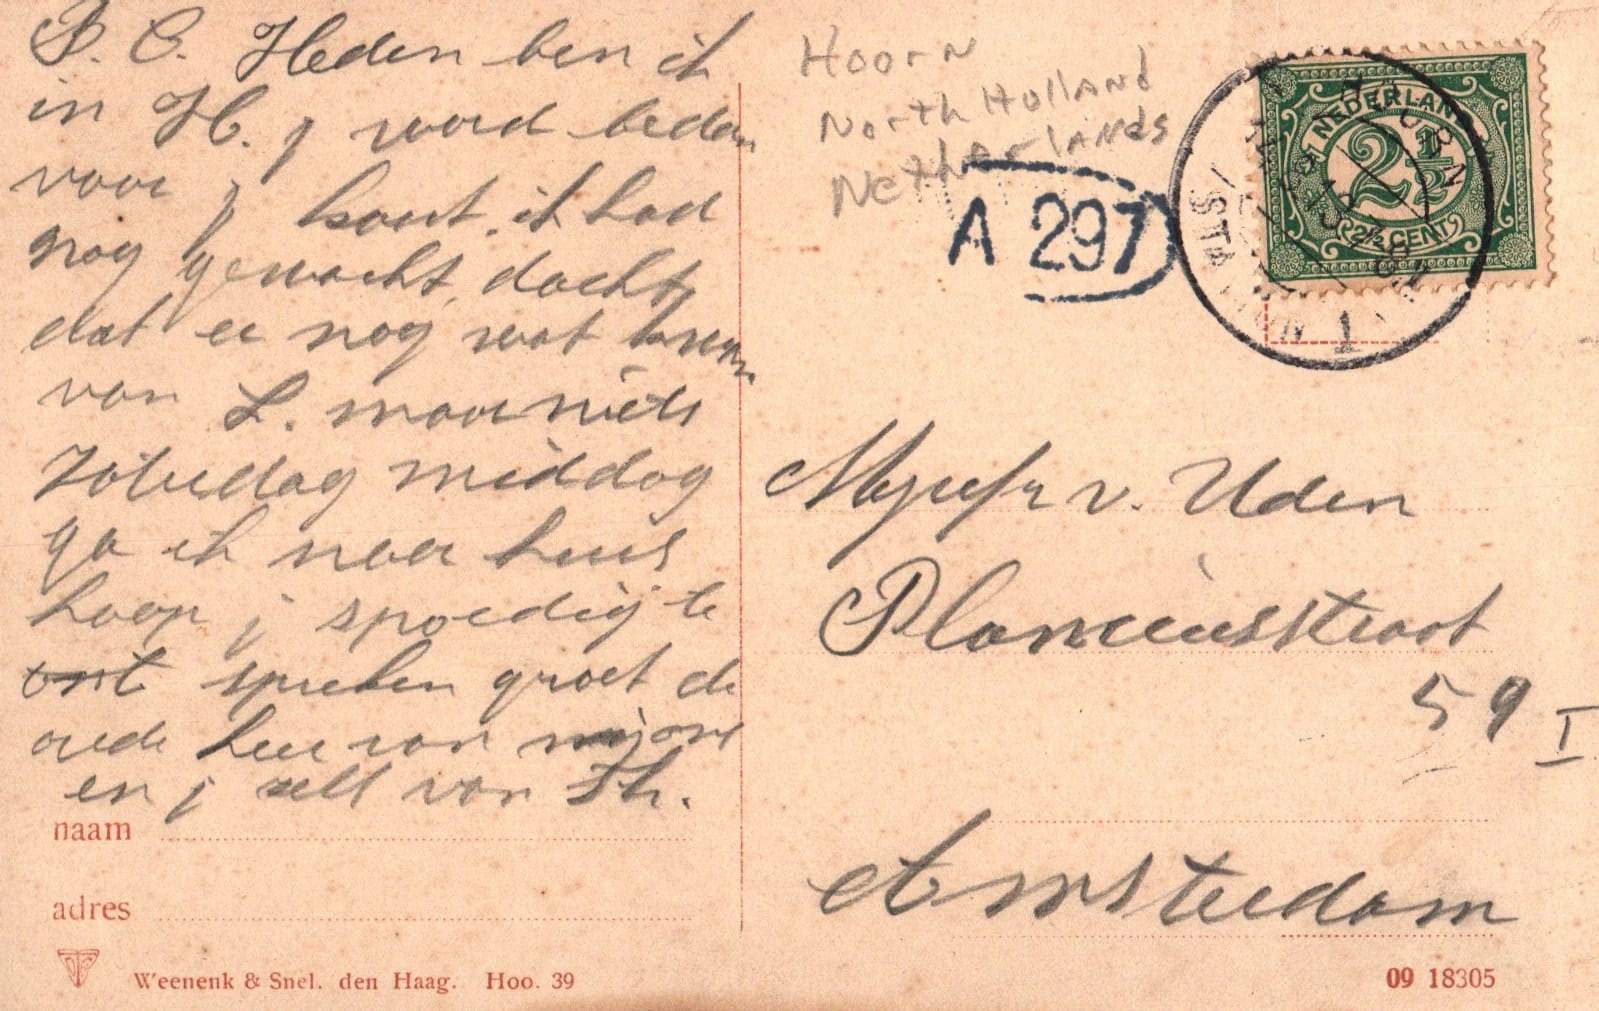 P. C. Heden ben ik
in H. j word bedan
voor j kaart. ik had
nog gewacht, dacht
dat er nog wat kwam
van L. maar niets
Zaterdag middag
ga ik naar huis
hoop j spoedig te
spreken groet de
oude heer van mijons
en j zelf van Th.
naam
adres
Weenenk & Snel. den Haag. Hoo. 39
Hoorn
North Holland
Netherlands
A 297
NEDERLAND
2½
2½ CENT
HOORN
STATION
1
Mejufr v. Uden
Planciusstraat
59 I
Amsterdam
09 18305